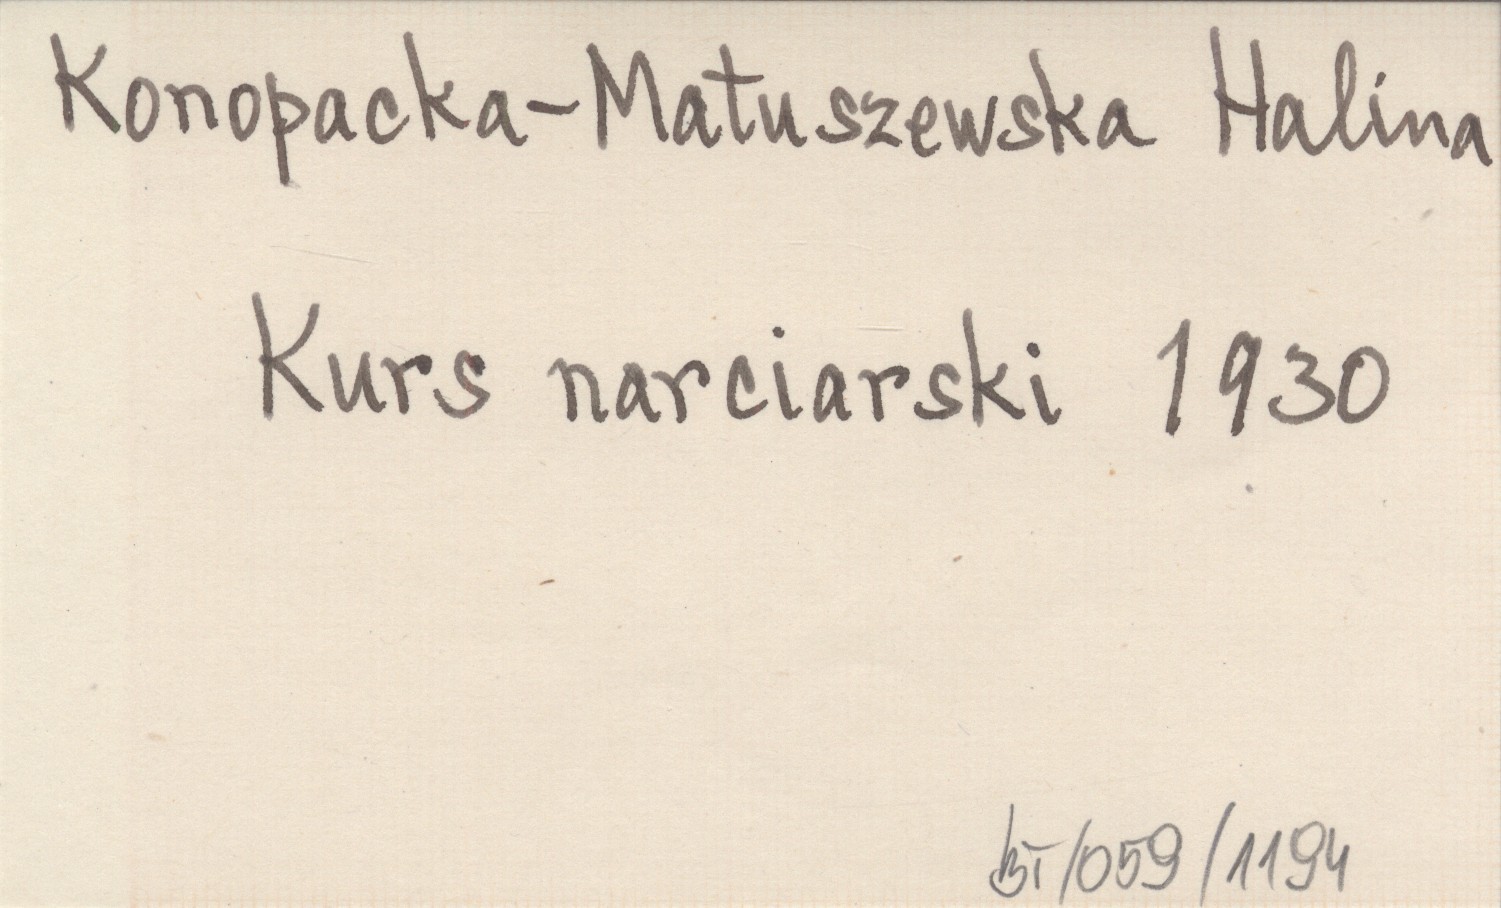 Konopacka-Matuszewska Halina
Kurs narciarski 1930
/059/1194